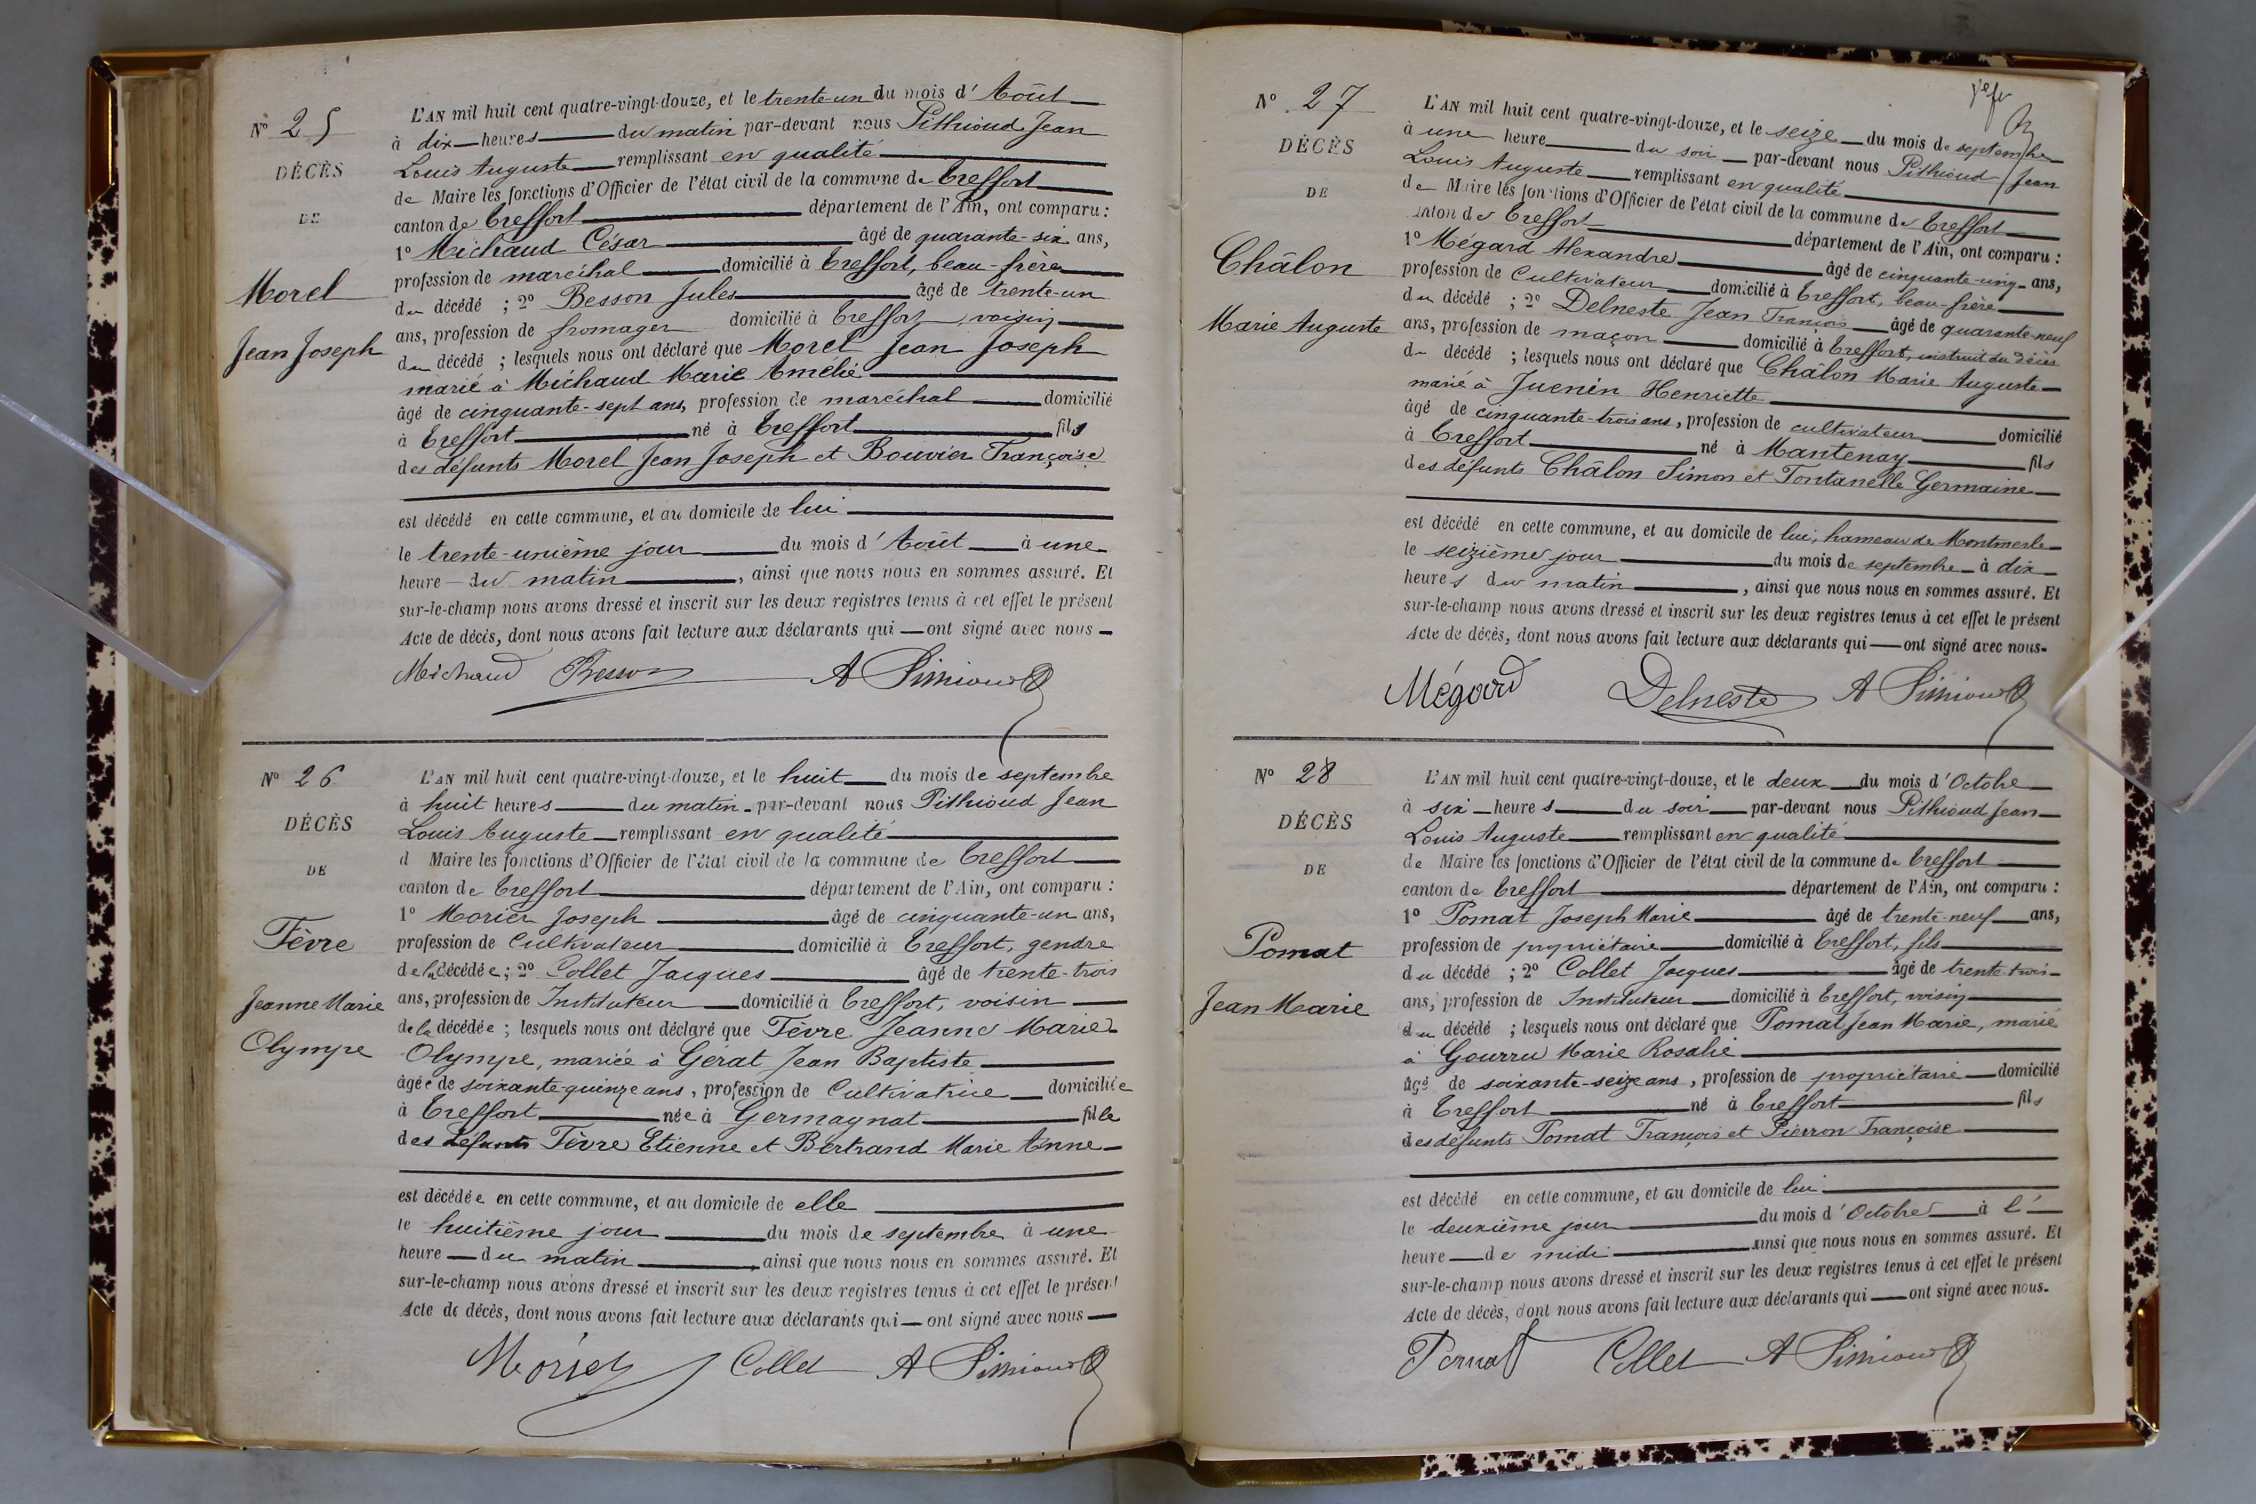 N° 25
DÉCÈS
DE
Morel
Jean Joseph
L'AN mil huit cent quatre-vingt-douze, et le trente-un du mois d'Août
à dix heures du matin par-devant nous Pithioud Jean
Louis Auguste remplissant en qualité
de Maire les fonctions d'Officier de l'état civil de la commune de Treffort
canton de Treffort département de l'Ain, ont comparu :
1° Michaud César âgé de quarante-six ans,
profession de maréchal domicilié à Treffort, beau-frère
du décédé ; 2° Besson Jules âgé de trente-un
ans, profession de fromager domicilié à Treffort, voisin
du décédé ; lesquels nous ont déclaré que Morel Jean Joseph
marié à Michaud Marie Amélie
âgé de cinquante-sept ans, profession de maréchal domicilié
à Treffort né à Treffort fils
des défunts Morel Jean Joseph et Bouvier Françoise
est décédé en cette commune, et au domicile de lui
le trente-unième jour du mois d'Août à une
heure du matin, ainsi que nous nous en sommes assuré. Et
sur-le-champ nous avons dressé et inscrit sur les deux registres tenus à cet effet le présent
Acte de décès, dont nous avons fait lecture aux déclarants qui ont signé avec nous
Michaud Besson A Pithioud
N° 26
DÉCÈS
DE
Fèvre
Jeanne Marie
Olympe
L'AN mil huit cent quatre-vingt-douze, et le huit du mois de septembre
à huit heures du matin par-devant nous Pithioud Jean
Louis Auguste remplissant en qualité
d Maire les fonctions d'Officier de l'état civil de la commune de Treffort
canton de Treffort département de l'Ain, ont comparu :
1° Morier Joseph âgé de cinquante-un ans,
profession de Cultivateur domicilié à Treffort, gendre
de la décédée ; 2° Collet Jacques âgé de trente-trois
ans, profession de Instituteur domicilié à Treffort, voisin
de la décédée ; lesquels nous ont déclaré que Fèvre Jeanne Marie
Olympe, mariée à Gerat Jean Baptiste
âgée de soixante-quinze ans, profession de Cultivatrice domiciliée
à Treffort née à Germagnat fille
des défunts Fèvre Etienne et Bertrand Marie Anne
est décédée en cette commune, et au domicile de elle
le huitième jour du mois de septembre à une
heure du matin, ainsi que nous nous en sommes assuré. Et
sur-le-champ nous avons dressé et inscrit sur les deux registres tenus à cet effet le présent
Acte de décès, dont nous avons fait lecture aux déclarants qui ont signé avec nous
Morier Collet A Pithioud
N° 27
DÉCÈS
DE
Châlon
Marie Auguste
L'AN mil huit cent quatre-vingt-douze, et le seize du mois de septembre
à une heure du soir par-devant nous Pithioud Jean
Louis Auguste remplissant en qualité
de Maire les fonctions d'Officier de l'état civil de la commune de Treffort
canton de Treffort département de l'Ain, ont comparu :
1° Mégard Alexandre âgé de cinquante-cinq ans,
profession de Cultivateur domicilié à Treffort, beau-frère
du décédé ; 2° Delneste Jean François âgé de quarante-neuf
ans, profession de maçon domicilié à Treffort, instruit du décès
d décédé ; lesquels nous ont déclaré que Châlon Marie Auguste
marié à Juenin Henriette
âgé de cinquante-trois ans, profession de cultivateur domicilié
à Treffort né à Mantenay fils
des défunts Châlon Simon et Fontanelle Germaine
est décédé en cette commune, et au domicile de lui, hameau de Montmerle
le seizième jour du mois de septembre à dix
heures du matin, ainsi que nous nous en sommes assuré. Et
sur-le-champ nous avons dressé et inscrit sur les deux registres tenus à cet effet le présent
Acte de décès, dont nous avons fait lecture aux déclarants qui ont signé avec nous.
Mégard Delneste A Pithioud
N° 28
DÉCÈS
DE
Pomat
Jean Marie
L'AN mil huit cent quatre-vingt-douze, et le deux du mois d'Octobre
à six heures du soir par-devant nous Pithioud Jean
Louis Auguste remplissant en qualité
de Maire les fonctions d'Officier de l'état civil de la commune de Treffort
canton de Treffort département de l'Ain, ont comparu :
1° Pomat Joseph Marie âgé de trente-neuf ans,
profession de propriétaire domicilié à Treffort, fils
du décédé ; 2° Collet Jacques âgé de trente-trois
ans, profession de Instituteur domicilié à Treffort, voisin
du décédé ; lesquels nous ont déclaré que Pomat Jean Marie, marié
à Gourru Marie Rosalie
âgé de soixante-seize ans, profession de propriétaire domicilié
à Treffort né à Treffort fils
des défunts Pomat François et Pierron Françoise
est décédé en cette commune, et au domicile de lui
le deuxième jour du mois d'Octobre à l'
heure de midi ainsi que nous nous en sommes assuré. Et
sur-le-champ nous avons dressé et inscrit sur les deux registres tenus à cet effet le présent
Acte de décès, dont nous avons fait lecture aux déclarants qui ont signé avec nous.
Pomat Collet A Pithioud